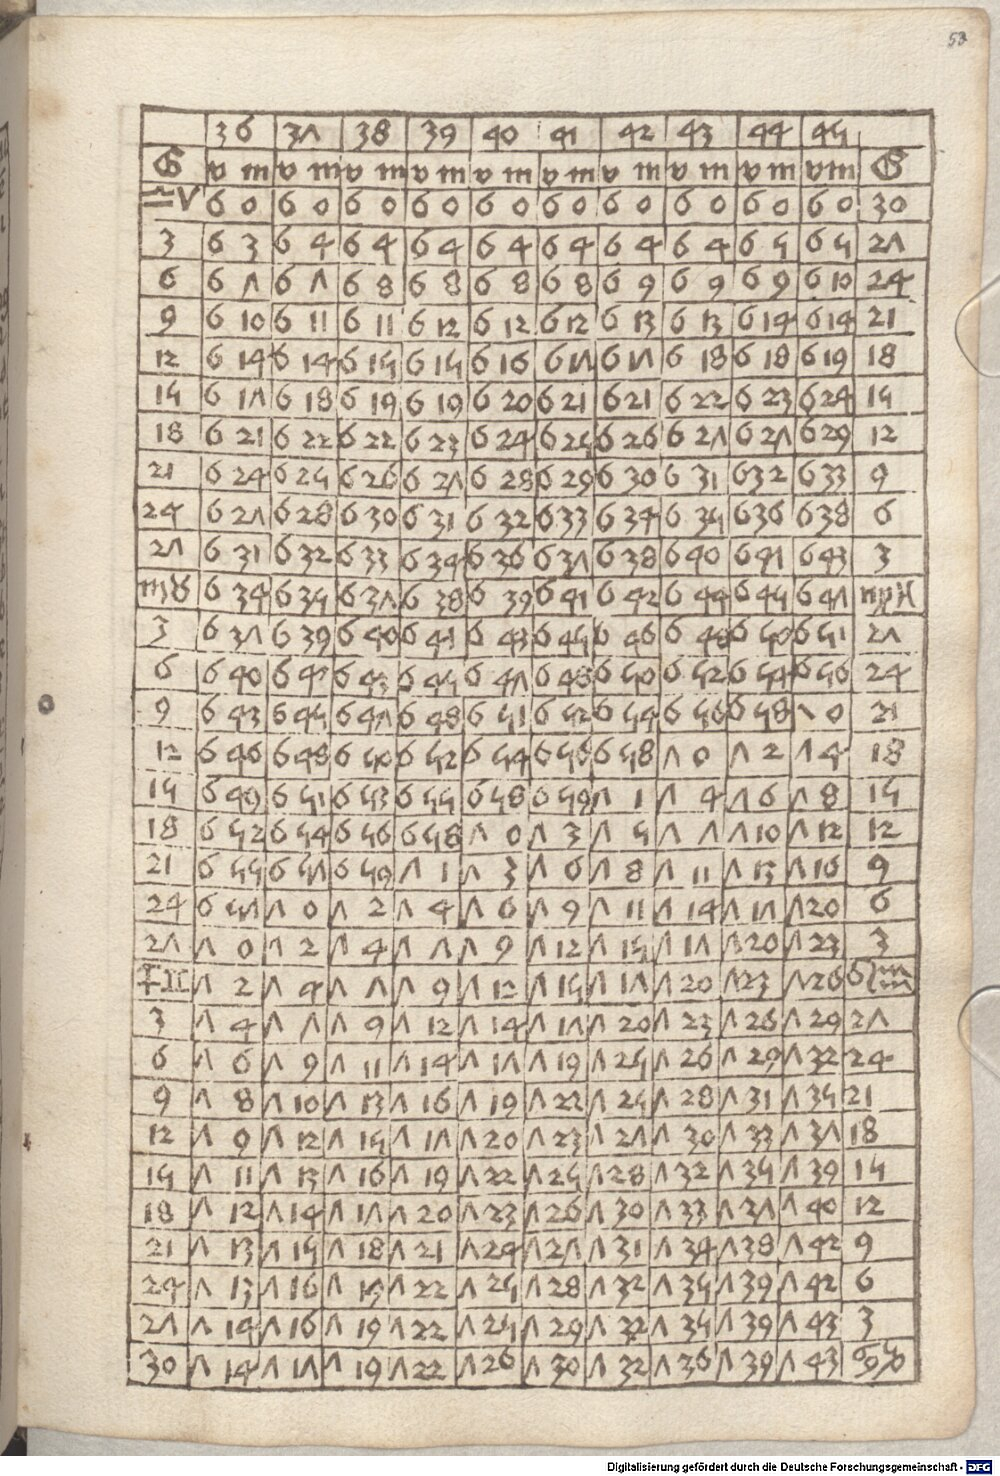 53
36 37 38 39 40 41 42 43 44 45
G v m v m v m v m v m v m v m v m v m v m G
♎ V 6 0 6 0 6 0 6 0 6 0 6 0 6 0 6 0 6 0 6 0 30
3 6 3 6 4 6 4 6 4 6 4 6 4 6 4 6 4 6 5 6 5 27
6 6 7 6 7 6 8 6 8 6 8 6 8 6 9 6 9 6 9 6 10 24
9 6 10 6 11 6 11 6 12 6 12 6 12 6 13 6 13 6 14 6 14 21
12 6 14 6 14 6 15 6 15 6 16 6 17 6 17 6 18 6 18 6 19 18
15 6 17 6 18 6 19 6 19 6 20 6 21 6 21 6 22 6 23 6 24 15
18 6 21 6 22 6 22 6 23 6 24 6 25 6 26 6 27 6 27 6 29 12
21 6 24 6 25 6 26 6 27 6 28 6 29 6 30 6 31 6 32 6 33 9
24 6 27 6 28 6 30 6 31 6 32 6 33 6 34 6 35 6 36 6 38 6
27 6 31 6 32 6 33 6 34 6 36 6 37 6 38 6 40 6 41 6 43 3
♏ ♉ 6 34 6 35 6 37 6 38 6 39 6 41 6 42 6 44 6 45 6 47 ♍ ♓
3 6 37 6 39 6 40 6 41 6 43 6 45 6 46 6 48 6 50 6 51 27
6 6 40 6 42 6 43 6 45 6 47 6 48 6 50 6 52 6 54 6 56 24
9 6 43 6 45 6 47 6 48 6 51 6 52 6 54 6 56 6 58 7 0 21
12 6 46 6 48 6 50 6 52 6 54 6 56 6 58 7 0 7 2 7 4 18
15 6 49 6 51 6 53 6 55 6 58 6 59 7 1 7 4 7 6 7 8 15
18 6 52 6 54 6 56 6 58 7 0 7 3 7 5 7 7 7 10 7 12 12
21 6 55 6 57 6 59 7 1 7 3 7 6 7 8 7 11 7 13 7 16 9
24 6 57 7 0 7 2 7 4 7 6 7 9 7 11 7 14 7 17 7 20 6
27 7 0 7 2 7 4 7 7 7 9 7 12 7 15 7 17 7 20 7 23 3
♐ ♊ 7 2 7 4 7 7 7 9 7 12 7 15 7 17 7 20 7 23 7 26 ♌ ♒
3 7 4 7 7 7 9 7 12 7 14 7 17 7 20 7 23 7 26 7 29 27
6 7 6 7 9 7 11 7 14 7 17 7 19 7 25 7 26 7 29 7 32 24
9 7 8 7 10 7 13 7 16 7 19 7 22 7 25 7 28 7 31 7 35 21
12 7 9 7 12 7 15 7 17 7 20 7 23 7 27 7 30 7 33 7 37 18
15 7 11 7 13 7 16 7 19 7 22 7 25 7 28 7 32 7 35 7 39 15
18 7 12 7 14 7 17 7 20 7 23 7 26 7 30 7 33 7 37 7 40 12
21 7 13 7 15 7 18 7 21 7 24 7 27 7 31 7 34 7 38 7 42 9
24 7 13 7 16 7 19 7 22 7 25 7 28 7 32 7 35 7 39 7 42 6
27 7 14 7 16 7 19 7 22 7 25 7 29 7 32 7 35 7 39 7 43 3
30 7 14 7 17 7 19 7 22 7 26 7 30 7 32 7 36 7 39 7 43 ♋ ♑
Digitalisierung gefördert durch die Deutsche Forschungsgemeinschaft - DFG